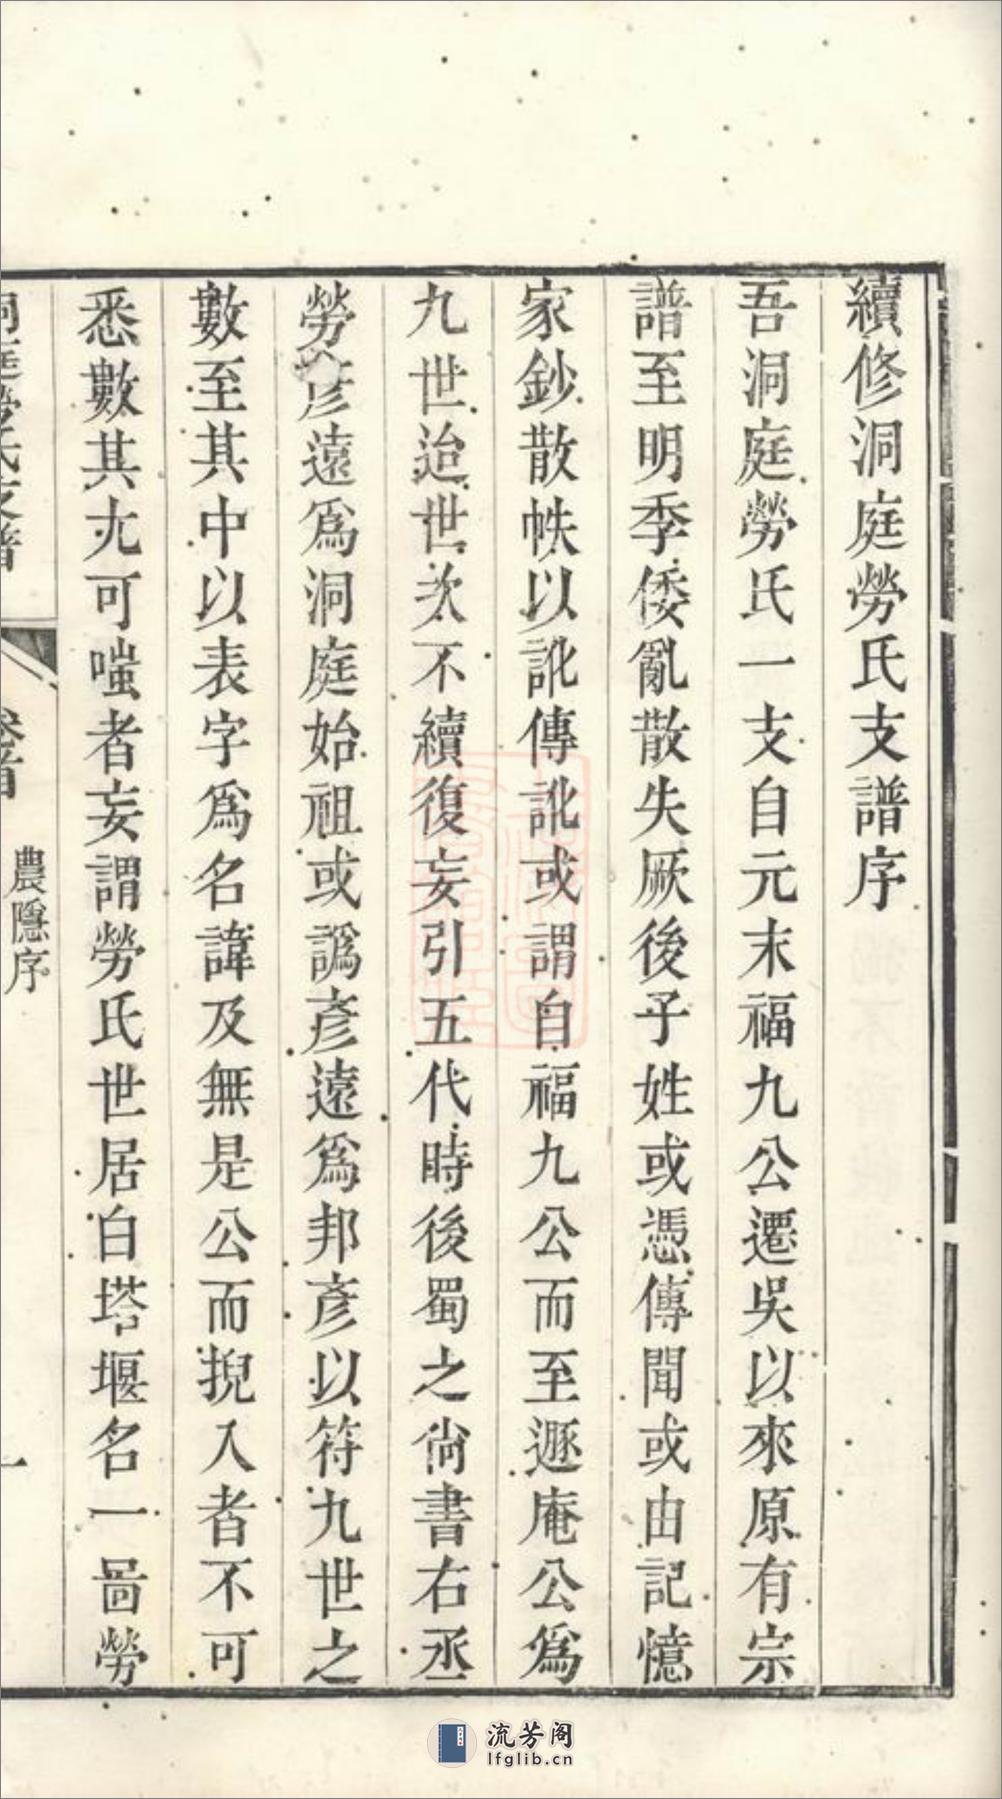 續修洞庭勞氏支譜序
吾洞庭勞氏一支自元末福九公遷吳以來原有宗
譜至明季倭亂散失厥後子姓或憑傳聞或由記憶
家鈔散帙以訛傳訛或謂自福九公而至遯庵公爲
九世迨世次不續復妄引五代時後蜀之尙書右丞
勞彥遠爲洞庭始祖或譌彥遠爲邦彥以符九世之
數至其中以表字爲名諱及無是公而掜入者不可
悉數其尤可嗤者妄謂勞氏世居白塔堰名一啚勞
洞庭勞氏支譜 卷首 農隱序 一
流芳阁
lfglib.cn